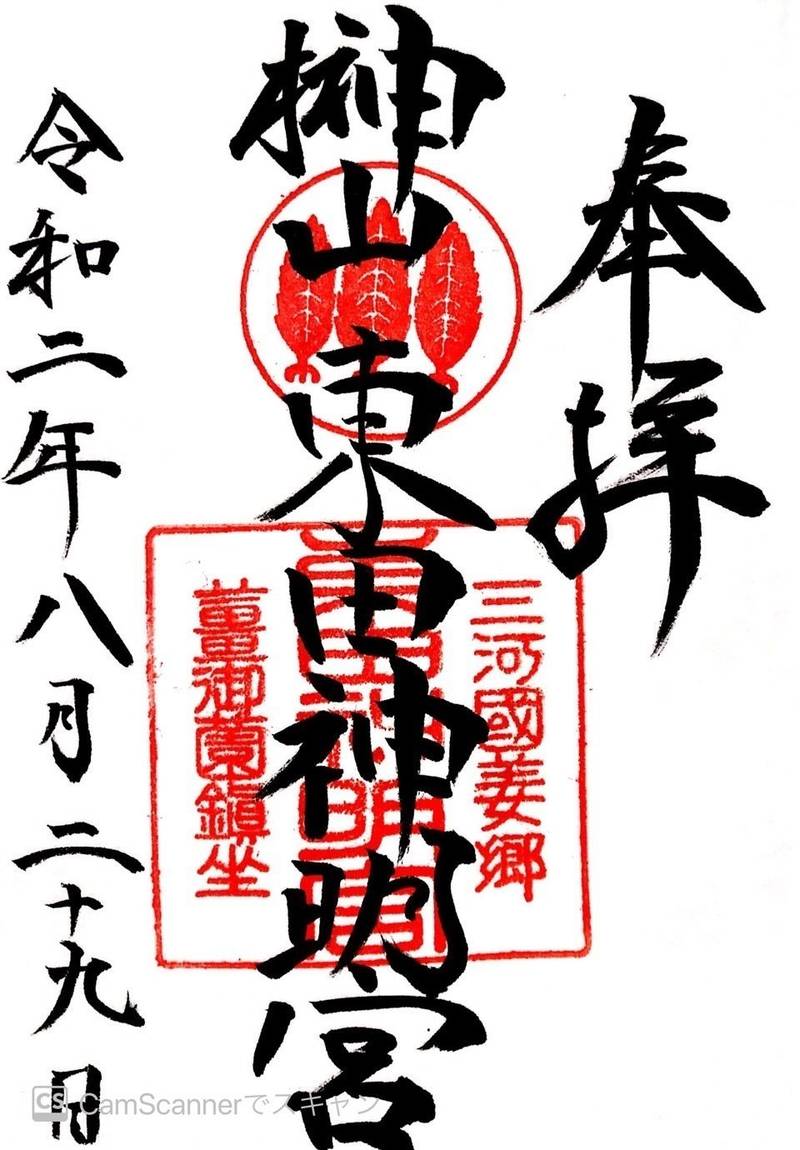 奉拝
榊山東田神明宮
三河國姜郷
東田神明宮
薑御薗鎮坐
令和二年八月二十九日
CS CamScannerでスキャン